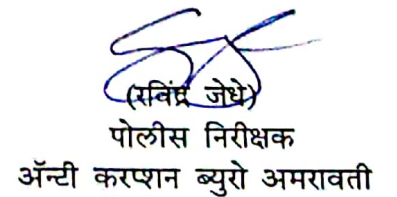 (रविंद्र जेधे)
पोलीस निरीक्षक
ॲन्टी करप्शन ब्युरो अमरावती